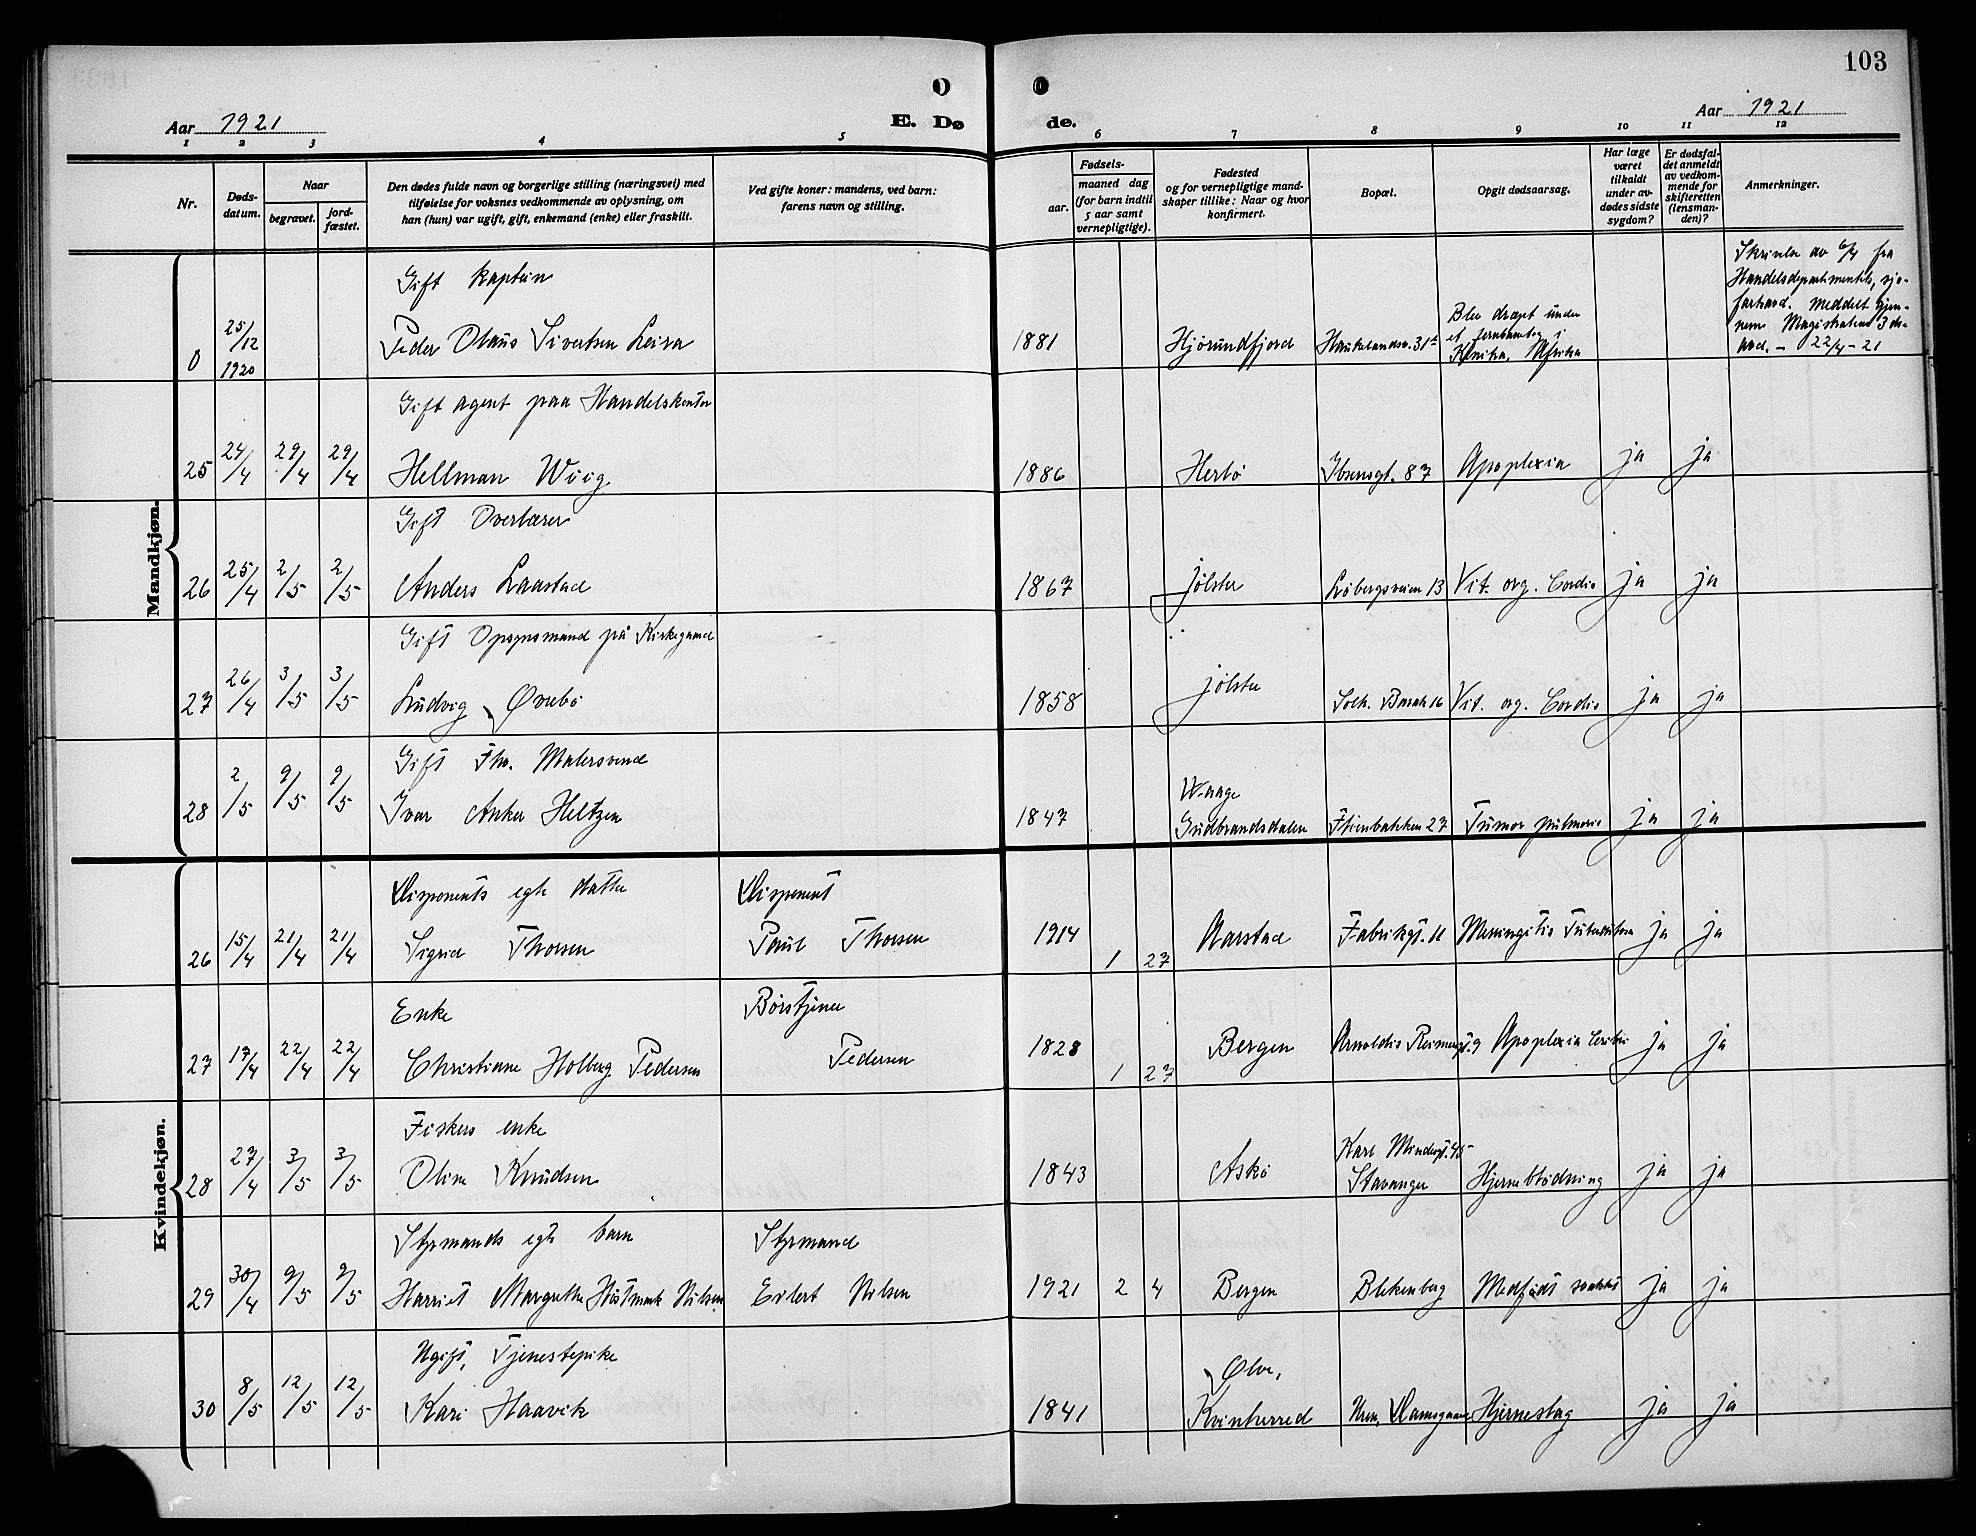 103
O O
Aar 1921
E. Dø de.
Aar 1921
1 2 3 4 5 6 7 8 9 10 11 12
Nr.
Døds-
datum.
Naar
begravet.
jord-
fæstet.
Den dødes fulde navn og borgerlige stilling (næringsvei) med
tilføielse for voksnes vedkommende av oplysning, om
han (hun) var ugift, gift, enkemand (enke) eller fraskilt.
Ved gifte koner: mandens, ved barn:
farens navn og stilling.
Fødsels-
aar.
maaned dag
(for barn indtil
5 aar samt
vernepligtige).
Fødested
og for vernepligtige mand-
skaper tillike: Naar og hvor
konfirmert.
Bopæl.
Opgit dødsaarsag.
Har læge
været
tilkaldt
under av-
dødes sidste
sygdom?
Er dødsfal-
det anmeldt
av vedkom-
mende for
skifteretten
(lensman-
den)?
Anmerkninger.
Mandkjøn.
Gift kaptein
0 25/12 1920 Peder Olaus Sivertsen Leira 1881 Hjørundfjord Haukelandsv. 31a
Blev dræpt under
et jernbanetog i
Afrika
Skrivelse av 6/4 fra
Handelsdepartementet, sjø-
fartsavd. Meddelt gjen-
nem Magistratens 3 die
avd. - 22/4-21
Gift agent paa Handelskontor
25 24/4 29/4 29/4 Hellman Wiig 1886 Herlø Ibsensgt. 87 Apoplexia ja ja
Gift Overlærer
26 25/4 2/5 2/5 Anders Laastad 1867 Jølster Løbergsveien 13 Vit. org. Cordis ja ja
Gift Opsynsmand på Kirkegaard
27 26/4 3/5 3/5 Ludvig Øvrebø 1858 Jølster Solh. Barak 16 Vit. org. Cordis ja ja
Gift Fhv. Malersvend
28 2/5 9/5 9/5 Ivar Anker Heltzen 1847
Waage
Gudbrandsdalen 27 Tumor pulmonis ja ja
Kvindekjøn.
Disponents egte datter Disponent
26 15/4 21/4 21/4 Sigrid Thorsen Paul Thorsen 1914 1 27 Aarstad Fabrikgt. 11 Meningitis Tuberkulosa ja ja
Enke Børstjener
27 17/4 22/4 22/4 Christiane Holberg Pedersen Pedersen 1828 1 27 Bergen Arnoldus Reimersgt. 9 Apoplexia Cerebri ja ja
Fiskers enke
28 27/4 3/5 3/5 Oline Knudsen 1843 Askø
Karl Mindesgt. 45
Stavanger Hjerneblødning ja ja
Styrmands egte barn Styrmand
29 30/4 9/5 9/5 Harriet Margrethe Nilsen Eilert Nilsen 1921 2 4 Bergen Blekenberg Medfødt svakhet ja ja
Ugift, Tjenestepike
30 8/5 12/5 12/5 Kari Haavik 1841
Ølve,
Kvinherred Hjerneslag ja ja